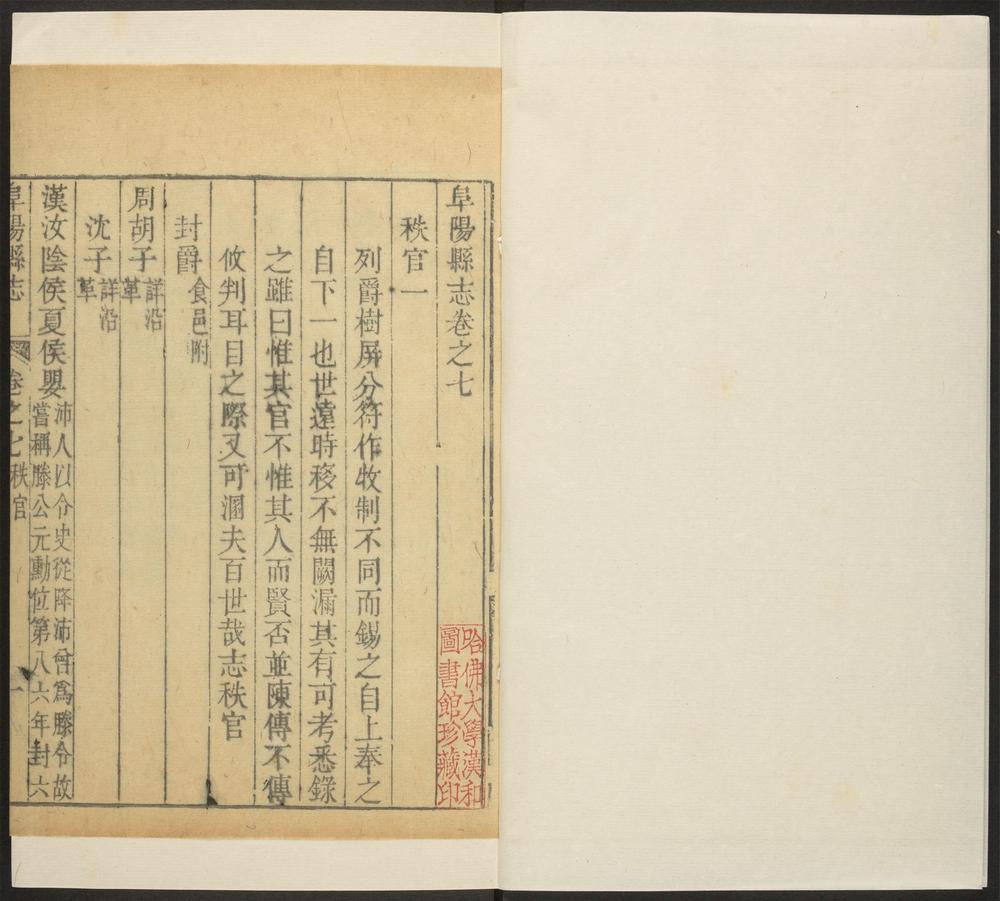 阜陽縣志卷之七
秩官一
列爵樹屏分符作牧制不同而錫之自上奉之
自下一也世遠時移不無闕漏其有可考悉錄
之雖曰惟其官不惟其人而賢否並陳傳不傳
攸判耳目之際又可溷夫百世哉志秩官
封爵食邑附
周胡子詳沿革
沈子詳沿革
漢汝陰侯夏侯嬰沛人以令史從降沛曾爲滕令故
嘗稱滕公元勳位第八六年封六
阜陽縣志 卷之七秩官 一
哈佛大學漢和
圖書館珍藏印